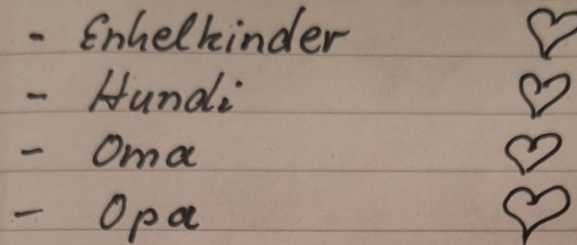 - Enkelkinder ♡
- Hundi ♡
- Oma ♡
- Opa ♡